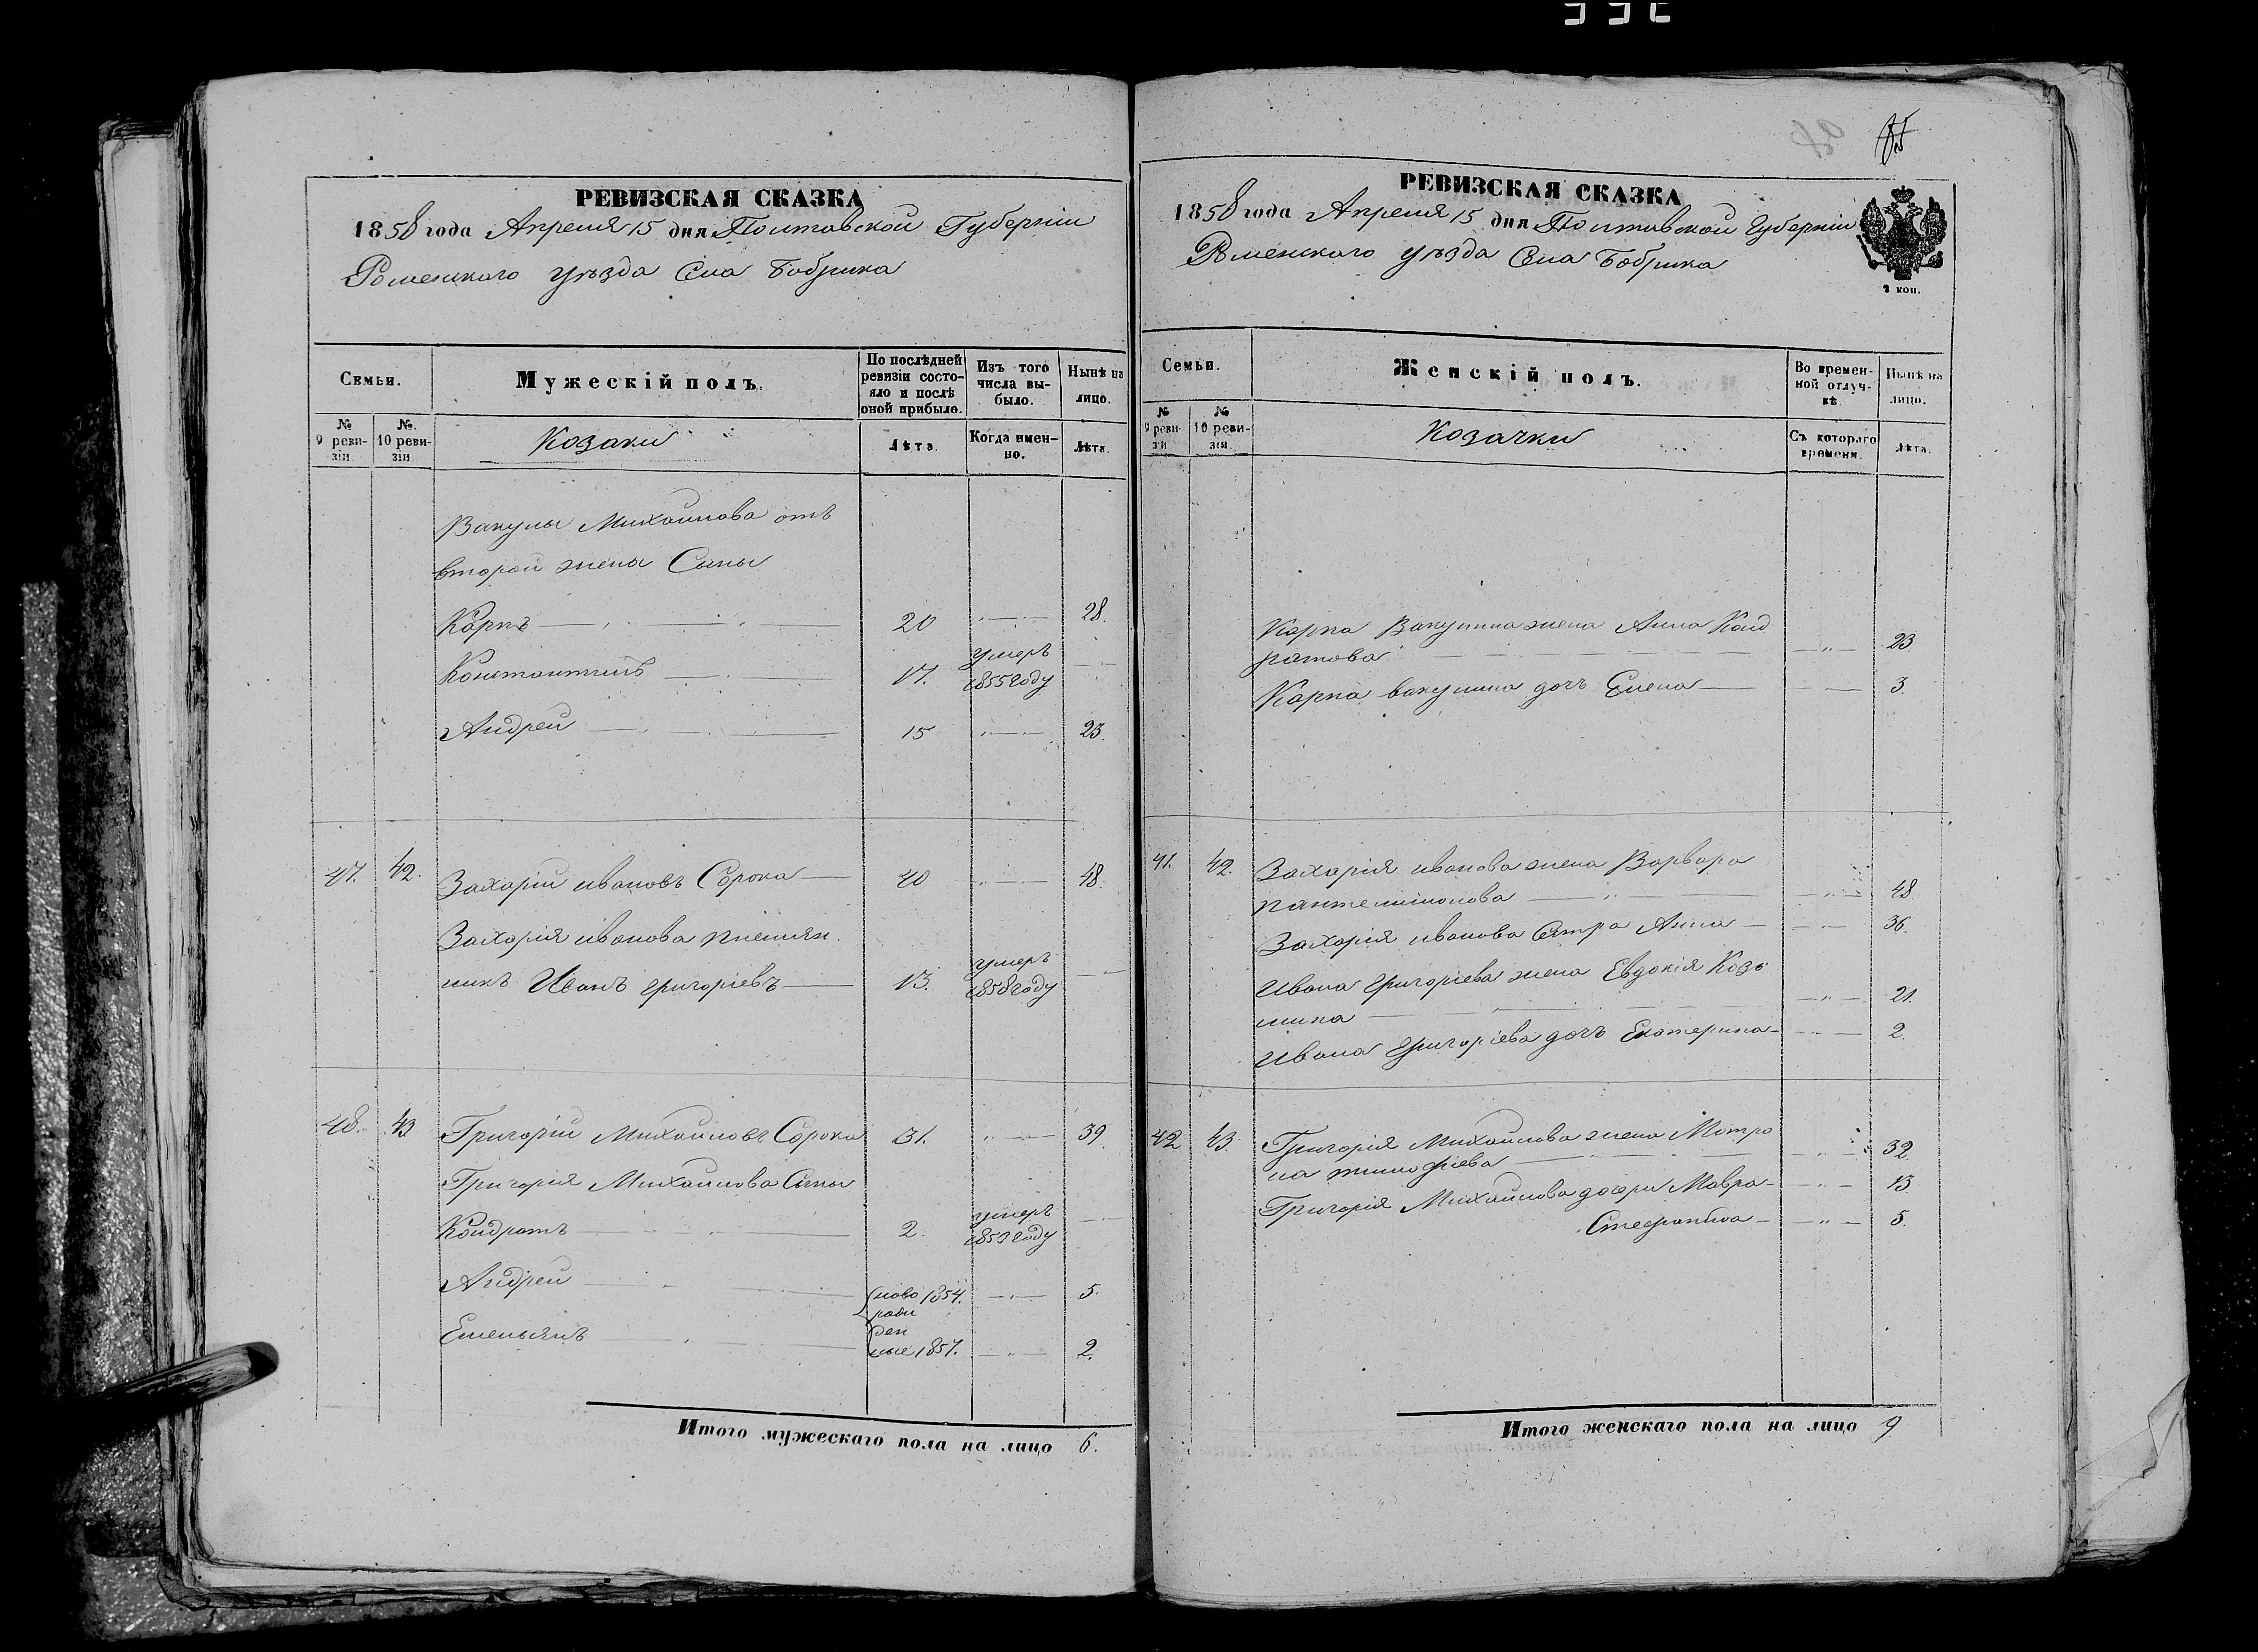 РЕВИЗСКАЯ СКАЗКА
1858 года Апреля 15 дня Полтавской Губерніи
Роменскаго уѣзда Села Бобрика
Семьи.
Мужескій полъ.
По послѣдней ревизіи состояло и послѣ оной прибыло.
Изъ того числа выбыло.
Нынѣ на лицо.
№ 9 ревизіи.
№ 10 ревизіи.
Козаки
Лѣта.
Когда именно.
Лѣта.
Вакулы Михайлова отъ
второй жены Сыны
Карпъ 20 28.
Константинъ 17. умеръ 1855 году
Андрей 15 23.
47. 42. Захарій ивановъ Сорока 40 48.
Захарія иванова племян
никъ Иванъ григоріевъ 13. умеръ 1858 году
48. 43 Григорій Михайловъ Сорока 31. 39.
Григорія Михайлова Сыны
Кондратъ 2. умеръ 1853 году
Андрей ново 1854. 5.
рож
ден
Емельянъ ные 1857. 2.
Итого мужескаго пола на лицо 6.
РЕВИЗСКАЯ СКАЗКА
1858 года Апреля 15 дня Полтавской Губерніи
Роменскаго уѣзда Села Бобрика
2 коп.
Семьи.
Женскій полъ.
Во временной отлучкѣ.
Нынѣ на лицо.
№ 9 ревизіи
№ 10 ревизіи.
Козачки
Съ котораго времени.
Лѣта.
Карпа Вакулина жена Анна Конд
ратова 23
Карпа вакулина дочь Елена 3.
41. 42. Захарія иванова жена Варвара
пантелимонова 48
Захарія иванова Сестра Анна 36.
Ивана григоріева жена Евдокія Козь
мина 21.
Ивана григоріева дочь Екатерина 2.
42 43. Григорія Михайлова жена Матро
на тимофіева 32
Григорія Михайлова дочери Мавра 13
Стефанида 5.
Итого женскаго пола на лицо 9